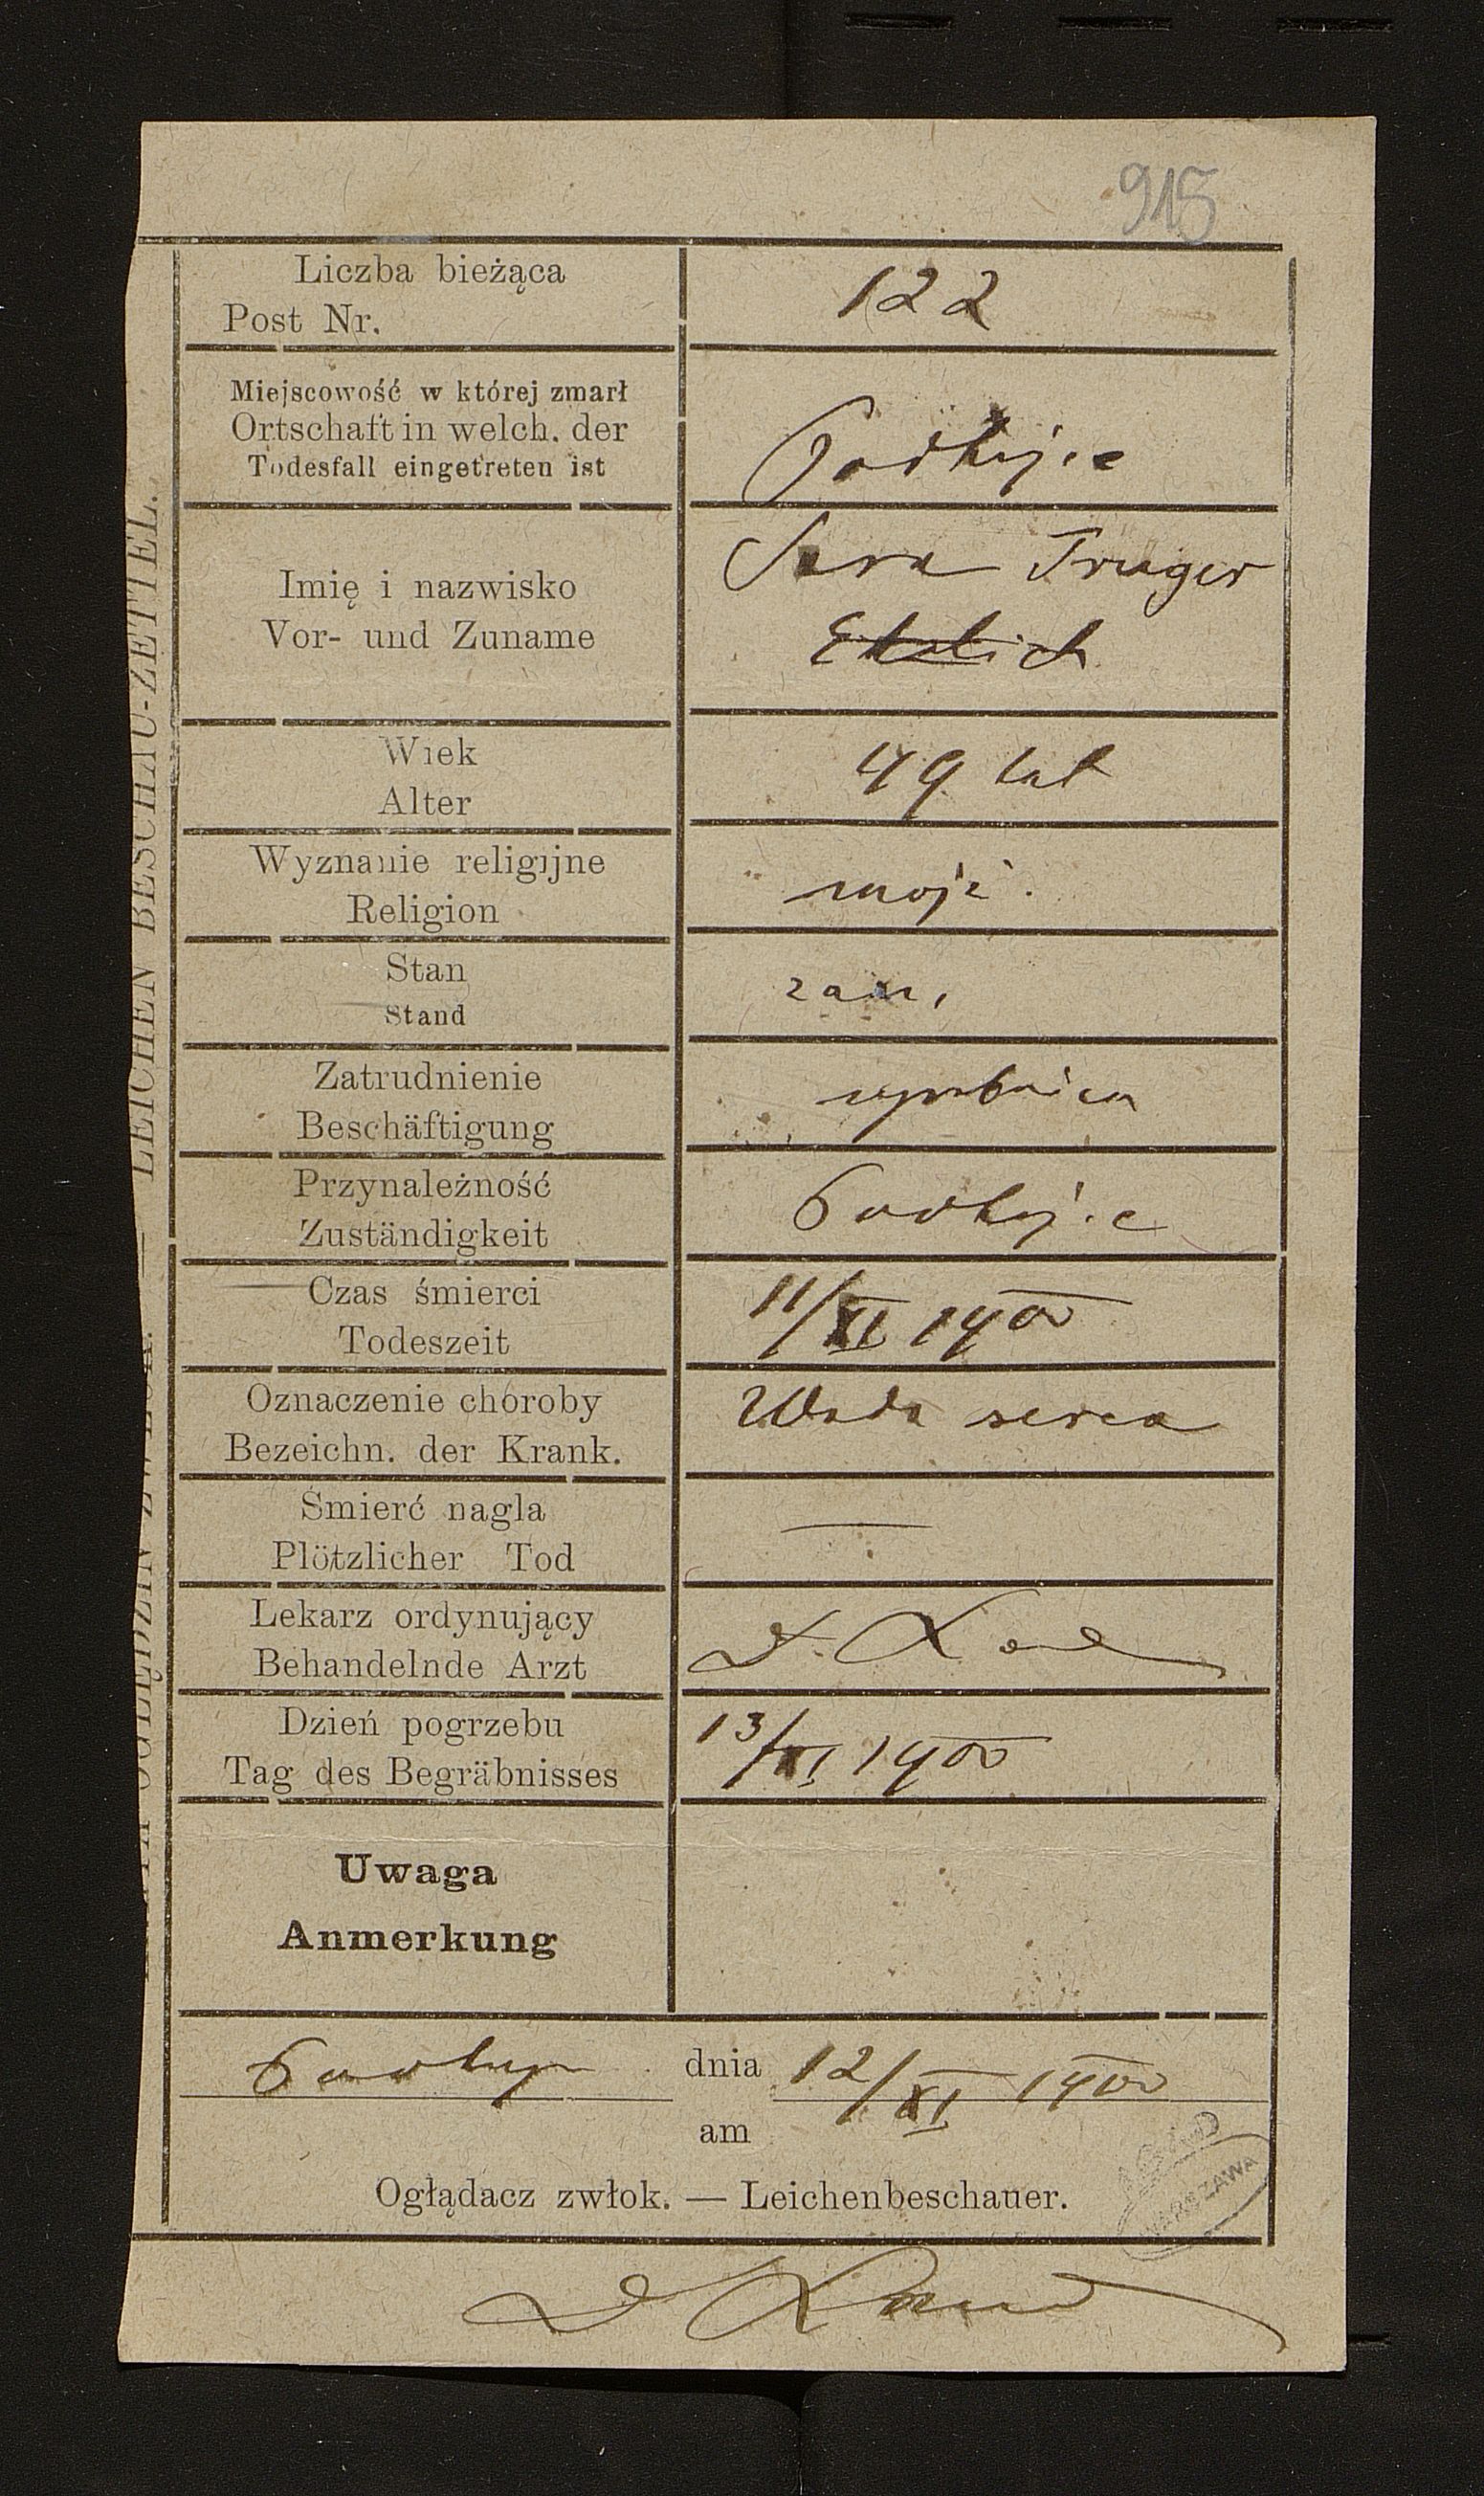 915
Liczba bieżąca
Post Nr.
122
Miejscowość w której zmarł
Ortschaft in welch. der
Todesfall eingetreten ist
Podhajce
Imię i nazwisko
Vor- und Zuname
Sara Truger
Ehrlich
Wiek
Alter
49 lat
Wyznanie religijne
Religion
mojż.
Stan
Stand
zam.
Zatrudnienie
Beschäftigung
Przynależność
Zuständigkeit
Podhajce
Czas śmierci
Todeszeit
11/XI 1900
Oznaczenie choroby
Bezeichn. der Krank.
Wada serca
Śmierć nagla
Plötzlicher Tod
—
Lekarz ordynujący
Behandelnde Arzt
Dzień pogrzebu
Tag des Begräbnisses
13/XI 1900
Uwaga
Anmerkung
dnia 12/XI 1900
am
Oglądacz zwłok. — Leichenbeschauer.
AGAD
WARSZAWA
LEICHEN BESCHAU-ZETTEL.